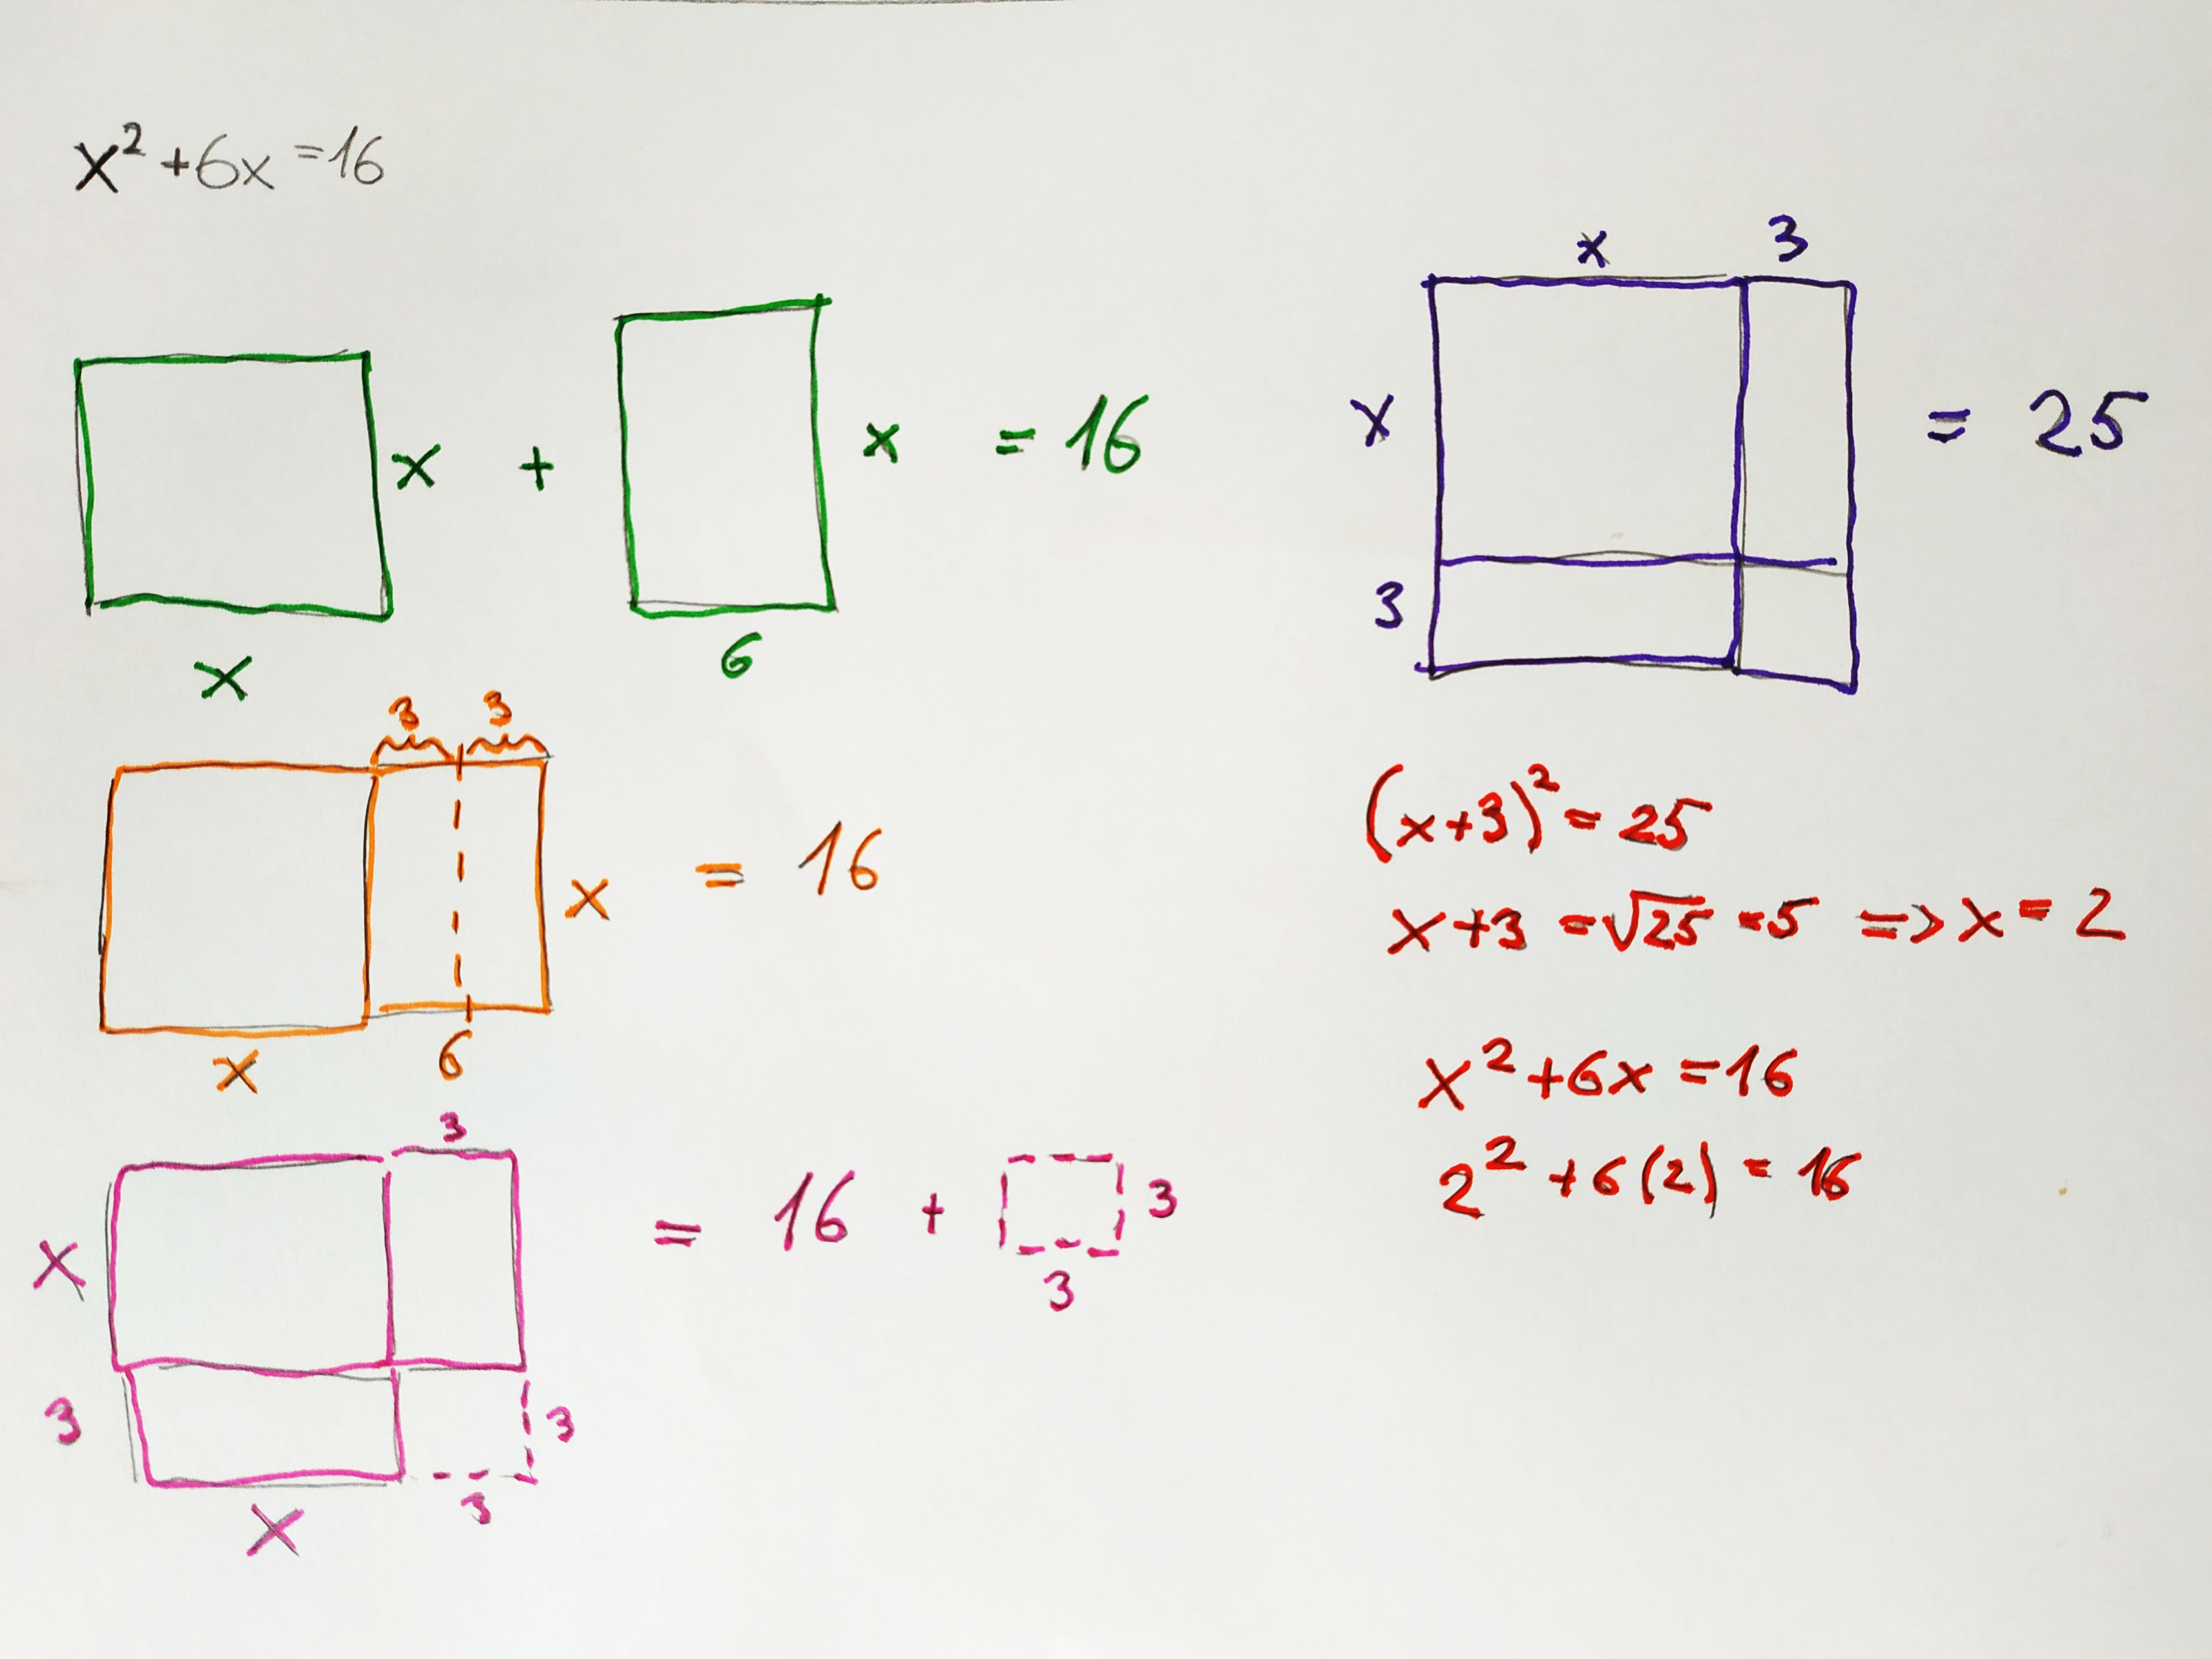 x² + 6x = 16
x + x = 16
x 6
3 3
x = 16
x 6
3
x = 16 + 3
3
3 3
x 3
x 3
x = 25
3
(x+3)² = 25
x + 3 = √25 = 5 => x = 2
x² + 6x = 16
2² + 6(2) = 16